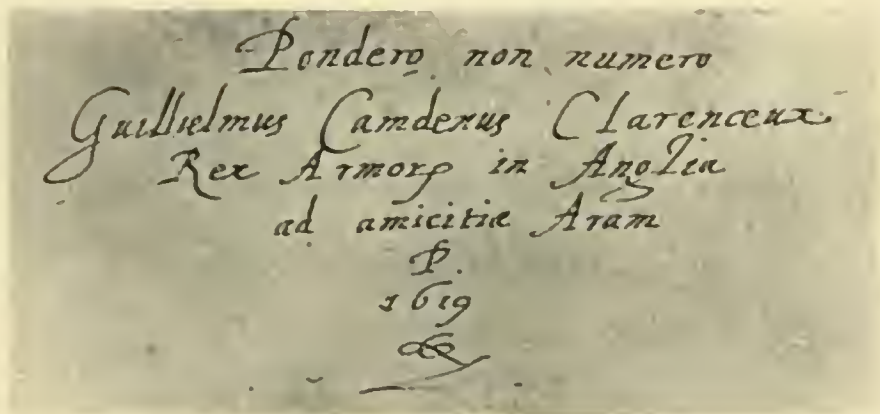 Pondero non numero
Guilielmus Camdenus Clarenceux
Rex Armorꝝ in Anglia
ad amicitiæ Aram
P.
1619